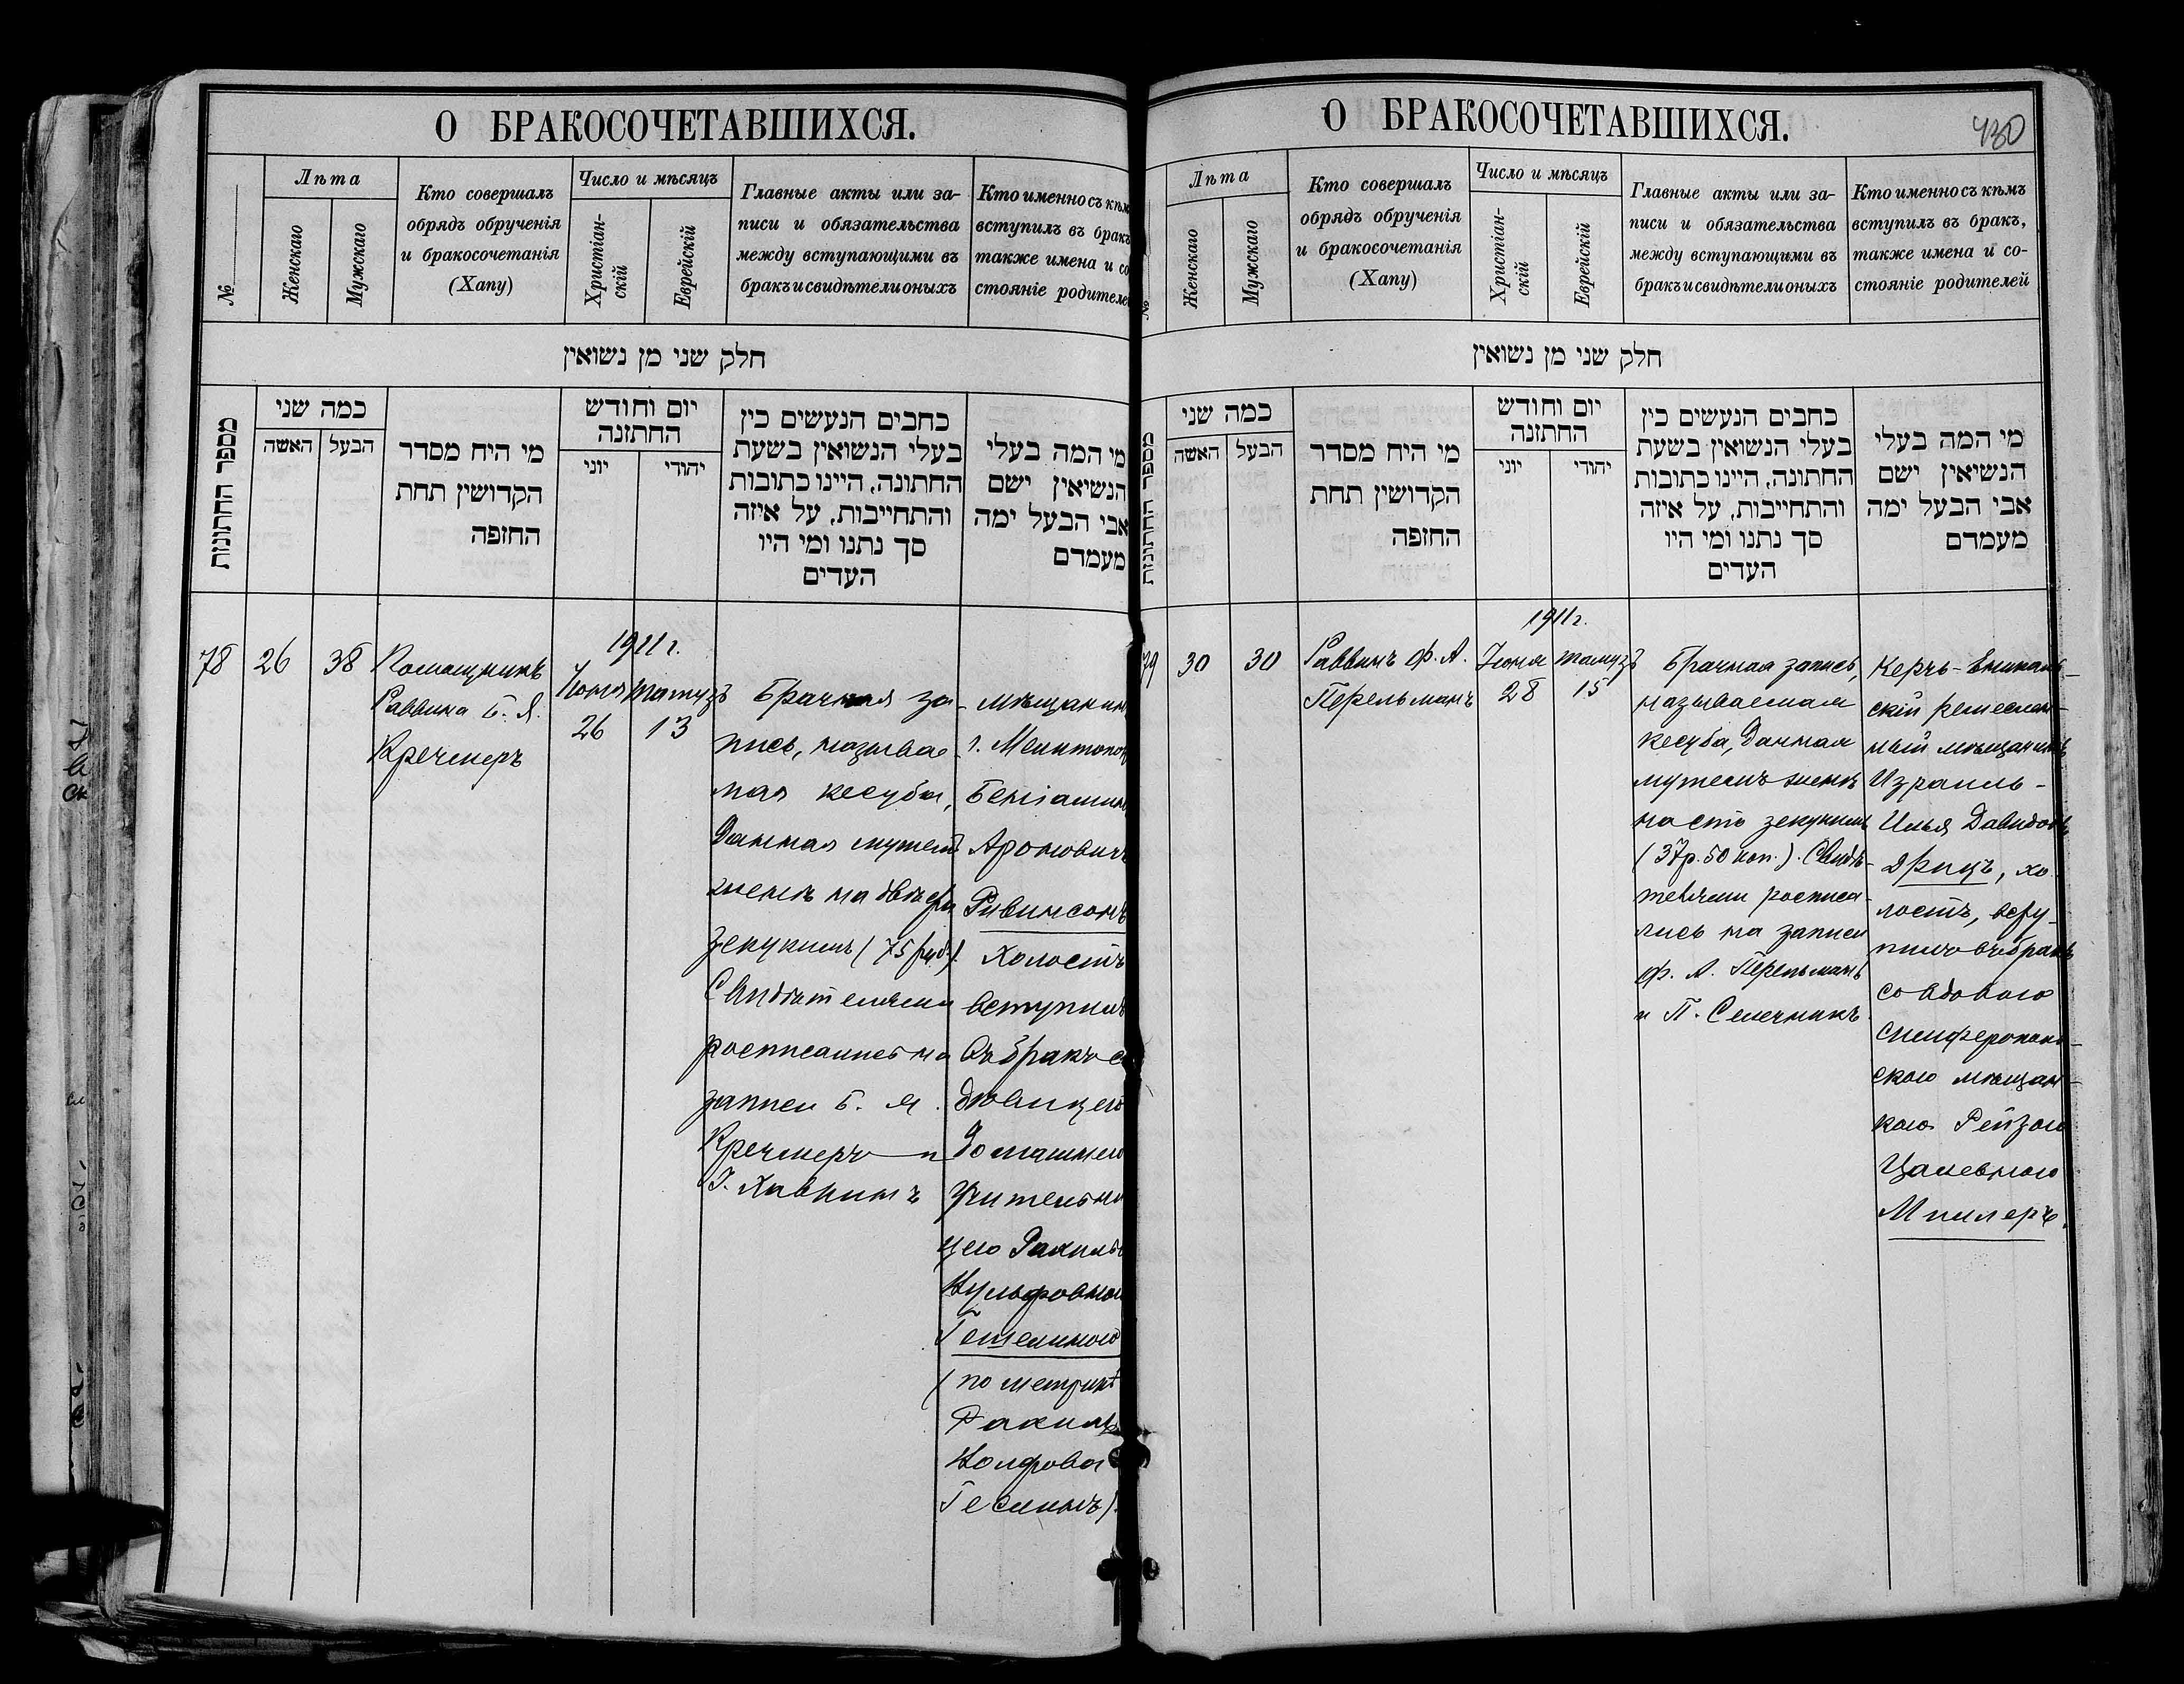 О БРАКОСОЧЕТАВШИХСЯ.
№
Лѣта
Женскаго
Мужскаго
Кто совершалъ
обрядъ обрученія
и бракосочетанія
(Хапу)
Число и мѣсяцъ
Христіан-
скій
Еврейскій
Главные акты или за-
писи и обязательства
между вступающими въ
бракъ и свидѣтели оныхъ
Кто именно съ кѣмъ
вступилъ въ бракъ
также имена и со
стояніе родителей
חלק שני מן נשואין
מספר החתונות
כמה שני
האשה
הבעל
מי היח מסדר
הקדושין תחת
החזפה
יום וחודש
החתזנה
יוני
יהודי
כחבים הנעשים כין
בעלי הנשואין בשעת
החתונה, היינו כתובות
והתחייבות, על איזה
סך נתנו ומי היו
העדים
מי המה בעלי
הנשיאין ישם
אבי הבעל ימה
מעמדם
78
26
38
Помощникъ
Раввина Б. Я.
Кречмеръ
1911 г.
Іюня
26
тамузъ
13
Брачная за-
пись, называе-
мая кесуба,
данная мужемъ
женѣ на двѣсти
зекукимъ (75 руб.).
Свидѣтелями
росписались на
записи Б. Я.
Кречмеръ и
І. Хавкинъ
мѣщанин
г. Мелитопол
Беніамин
Ароновичъ
Ривинсонъ
холостъ
вступилъ
въ бракъ с
дѣвицею
домашнею
учительни
цею Рахилью
Вульфовною
Гешелиною
(по метрикѣ
Рахиль
Волфова
Геслинъ).
О БРАКОСОЧЕТАВШИХСЯ.
430
№
Лѣта
Женскаго
Мужскаго
Кто совершалъ
обрядъ обрученія
и бракосочетанія
(Хапу)
Число и мѣсяцъ
Христіан-
скій
Еврейскій
Главные акты или за-
писи и обязательства
между вступающими въ
бракъ и свидѣтели оныхъ
Кто именно съ кѣмъ
вступилъ въ бракъ,
также имена и со-
стояніе родителей
חלק שני מן נשואין
מספר החתונות
כמה שני
האשה
הבעל
מי היח מסדר
הקדושין תחת
החזפה
יום וחודש
החתזנה
יוני
יהודי
כחבים הנעשים כין
בעלי הנשואין בשעת
החתונה, היינו כתובות
והתחייבות, על איזה
סך נתנו ומי היו
העדים
מי המה בעלי
הנשיאין ישם
אבי הבעל ימה
מעמדם
79
30
30
Раввинъ Ф. А.
Перельманъ
1911 г.
Іюня
28
тамузъ
15
Брачная запись,
называемая
кесуба, данная
мужемъ женѣ
на сто зекукимъ
(37 р. 50 коп.). Свидѣ-
телями росписа-
лись на записи
Ф. А. Перельманъ
и П. Сапечникъ
Керчь-Еникаль-
скій ремеслен-
ный мѣщанинъ
Израиль-
Илья Давидовъ
Дрицъ, хо-
лостъ, всту-
пилъ въ бракъ
со вдовою
симферополь-
скою мѣщан-
кою Рейзою
Цалевною
Миллеръ.